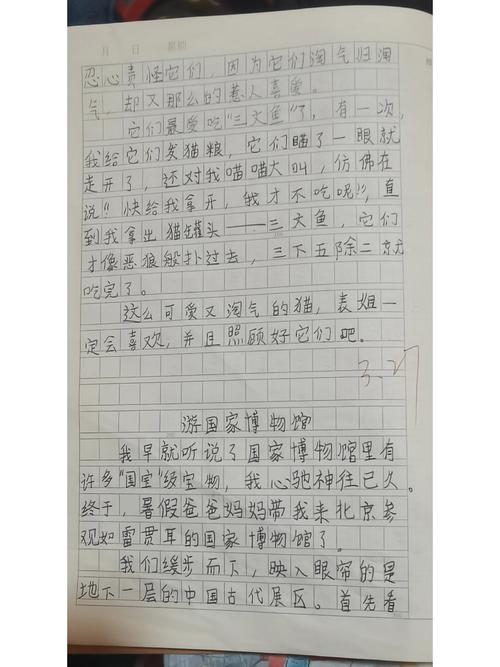 月 日 星期
忍心责怪它们，因为它们淘气归淘
气，却又那么的惹人喜爱。
它们最爱吃"三文鱼"了，有一次，
我给它们发猫粮，它们瞄了一眼就
走开了，还对我喵喵大叫，仿佛在
说"快给我拿开，我才不吃呢!!，直
到我拿出猫罐头——三文鱼，它们
才像恶狼般扑过去，三下五除二就
吃完了。
这么可爱又淘气的猫，表姐一
定会喜欢，并且照顾好它们吧。
3.27
游国家博物馆
我早就听说了国家博物馆里有
许多"国宝"级宝物，我心驰神往已久。
终于，暑假爸爸妈妈带我来北京参
观如雷贯耳的国家博物馆了。
我们缓步而下，映入眼帘的是
地下一层的中国古代展区。首先看